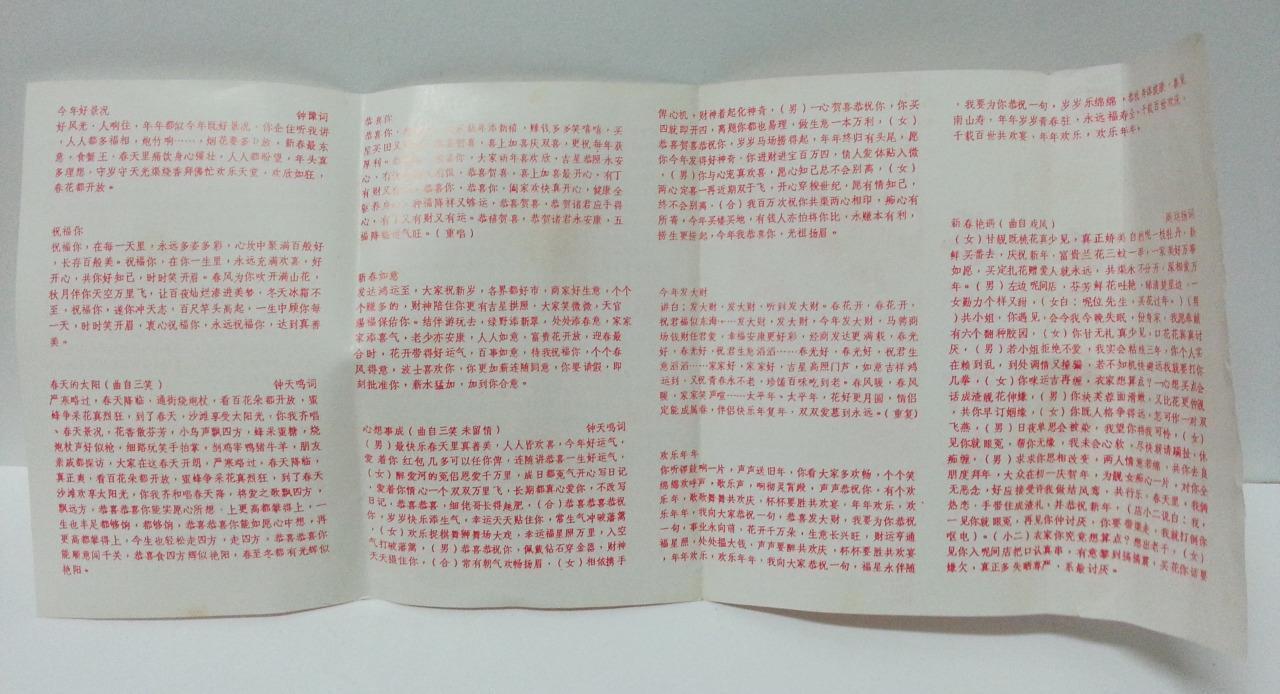 今年好景况 钟豫词
好风光，人啊住，年年都似今年既好景况，你企住听我讲
，人人都多福相，炮竹响……，烟花要多口放，新春最东
意，食蟹王，春天里痛饮身心强壮，人人都盼望，年头直
多理想，守岁守天光果绕香拜佛忙欢乐天堂，欢欣如狂，
春花都开放。
祝福你
祝福你，在每一天里，永远多姿多彩，心坎中聚满百般好
，长存百般美。祝福你，在你一生里，永远充满欢喜，好
开心，共你好知己，时时笑开眉。春风为你吹开满山花，
秋月伴你天空万里飞，让百夜灿烂渗进美梦，冬天冰霜不
至，祝福你，遂你冲天志，百尺竿头高起，一生中顾你每
一天，时时笑开眉，衷心祝福你，永远祝福你，达到真善
美。
春天的太阳（曲自三笑） 钟天鸣词
严寒略过，春天降临，通街烧炮杖，看百花朵都开放，蜜
蜂争采花真烈狂，到了春天，沙滩享受太阳光，你我齐唱
、春天景况，花香散芬芳，小鸟声飘四方，蜂采蜜糖，烧
炮杖声好似枪，细路玩笑手拍掌，劏鸡宰鸭猪牛羊，朋友
亲戚都探访，大家在这春天开朗，严寒略过，春天降临，
真正爽，看百花朵都开放，蜜蜂争采花真烈狂，到了春天
沙滩欢享太阳光，你我齐和唱春天降，将爱之歌飘四方，
飘远方，恭喜恭喜你能实愿心所想，上更高都攀得上，一
生也丰足都够饷，都够饷，恭喜恭喜你能如民心中想，再
更高都攀得上，今生也轻松走四方，走四方，恭喜恭喜你
能顺意闯千关，恭喜食四方辉似艳阳，春至冬都有光辉似
艳阳。
恭喜你
恭喜你，新年添新禧，赚钱多多笑嘻嘻，买
星买旧又 贺喜，喜上加喜庆双喜，更祝每年获
厚利。 喜你，大家动年喜欢欣，吉星恭照永安
心，有 有恨，恭喜贺喜，喜上加喜最开心，有丁
有财又有 恭喜你，恭喜你，阖家欢快真开心，健康全
躯养身心，种福降祥又够运，恭喜贺喜，恭贺诸君应手得
心，有丁又有财又有运。恭禧贺喜，恭贺诸君永安康，五
福降临运气旺。（重唱）
新春如意
发达鸿运至，大家祝新岁，各界都好市，商家好生意，个个
个赚多的，财神陪住你更有吉星拱照，大家笑微微，天官
赐福保佑你。结伴游玩去，绿野添新翠，处处添春意，家家
家添喜气，老少亦安康，人人如意，富贵花开放，迎春最
合时，花开带得好运气，百事如意，待我祝福你，个个春
风得意，波士喜欢你，你更加薪连随同意，你要请假，即
刻批准你，薪水猛加，加到你合意。
心想事成（曲自三笑 未留情） 钟天鸣词
（男）最快乐春天里真善美，人人皆欢喜，今年好运气，
爱着你 红包几多可以任你俾，连随讲恭喜一生好运气，
（女）醉爱河的冤侣恩爱千万里，成日都冤气开心写日记
，爱着你情心一个双双万里飞，长期都真心爱你，不改写
日记，恭喜恭喜，细佬哥长得趣肥，（合）恭喜恭喜恭祝
你，岁岁快乐添生气，幸运天天贴住你，常生气冲破藩篱
，（女）欢乐捉棋舞狮舞场大戏，幸运福星照万里，入空
气打破藩篱，（男）恭喜恭祝你，佩戴钻石穿金器，财神
天天摄住你，（合）常有朝气欢畅扬眉，（女）相依携手
俾心机，财神着起化神奇，（男）一心贺喜恭祝你，你买
四就即开四，离题你都也易理，做生意一本万利，（女）
恭喜贺喜恭祝你，岁岁马场捞得起，年年终归有头尾，愿
你今年发得好神奇，你进财进宝百万四，情人爱体贴入微
，（男）你与心觅真欢喜，愿心知己总不会别离，（女）
两心定喜一再近期双于飞，开心穿梭世纪，愿有情知己，
终不会别离，（合）我百万次祝你共渠两心相印，痴心有
所寄，今年买楼买地，有钱人亦怕将你比，永赚本有利，
捞生更捞起，今年我恭喜你，光祖扬眉。
今年发大财
讲白：发大财，发大财，听到发大财。春花开，春花开，
祝君福似东海……发大财，发大财，今年发大财，马骑商
场钱财任君爱，幸福安康更好彩，经商发达更满载，春光
好，春光好，祝君生意滔滔……春光好，春光好，祝君生
意滔滔……家家好，家家好，吉星高照门芦，如意吉祥鸿
运到，又祝青春永不老，珍馐百味吃到老。春风暖，春风
暖，家家笑声喧……太平年、太平年，花好更月圆，情侣
定能成属春，伴侣快乐年复年，双双爱慕到永远。（重复）
欢乐年年
你听锣鼓啊一片，声声送旧年，你看大家多欢畅，个个笑
绵绵欢呼声，歌乐声，响彻灵宵殿，声声恭祝你，有个欢
乐年，歌歌舞舞共欢庆，杯杯要胜共欢宴，年年欢乐，欢
乐年年，我向大家恭祝一句，恭喜发大财，我要为你恭祝
一句，事业永向萌，花开千万朵，生意长兴旺，财运亨通
福星照，处处揾大钱，声声要醉共欢庆，杯杯要胜共欢宴
，年年欢乐，欢乐年年，我向大家恭祝一句，福星永伴随
，我要为你恭祝一句，岁岁乐绵绵，恭祝身体健康，喜见
南山寿，年年岁岁青春驻，永远福寿全，千载百世欢庆，
千载百世共欢宴，年年欢乐，欢乐年年，
新春艳遇（曲自戏凤）
（女）甘靓既桃花真少见，真正娇美
鲜买番去，庆祝新年，富贵兰花三蚊一串，一家美好万事
如愿，买定扎花赠爱人就永远，共渠永不分开，深相爱万
年。（男）左边呢间店，芬芳鲜花吐艳，
女勤力个样又甜，（女白：呢位先生，买花过年。）（男
）共小姐，你遇见，会令我今晚失眠，
有六个翻种胶园，（女）你甘无礼真少见，口花花
厌，（男）若小姐拒绝不爱，我实会粘线三年，你个人实
在赖到乱，到处调情又撞骗，若不知机快避远我就要打你
几拳，（女）你咪运吉再缠，农家想算点？一心想买点会
话成渣靓花伸嫌，（男）你块芙蓉面滑嫩，又比花更伸靓
，共你早订姻缘，（女）你既人格争得远，怎可作一对双
飞燕，（男）日夜单思会被染，我望你将我可怜，（女）
见你就眼冤，帮你无缘，我未会心软，尽快
痴缠，（男）求求你思相改变，两人情意若绵，共你去良
朋度拜年，大众在初一庆贺年，为靓女痴心一片，对你全
无恶念，好应接受许我做结凤鸾，共行乐，春天里，我俩
热恋，手带住成渣礼，并恭祝新年，（店小二说白：我，
一见你就眼冤，再见你仲讨厌，你要带渠走，我就打倒你
呕电）。（小二）农家你究竟想算点？想出老千，（女）
见你入呢间店把口认真串，有意攀到搞搞震，买花你话要
嫌欠，真正多失晒尊严，系最讨厌。